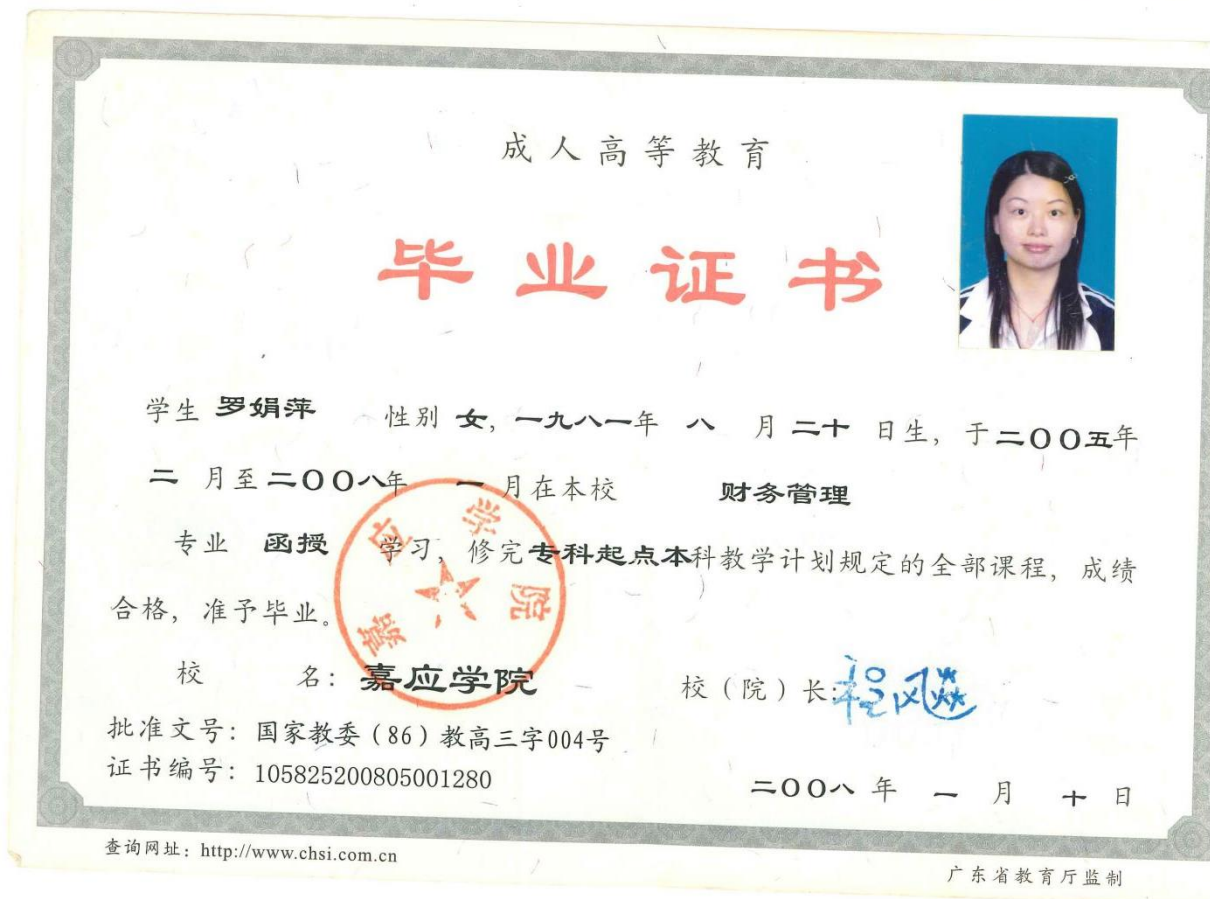 成人高等教育
毕业证书
学生 罗娟萍 性别 女, 一九八一年 八 月 二十 日生, 于二〇〇五年
二 月至二〇〇八年 一 月在本校 财务管理
专业 函授 学习, 修完专科起点本科教学计划规定的全部课程, 成绩
合格, 准予毕业。
嘉应学院
校 名: 嘉应学院
校(院)长: 程飚
批准文号: 国家教委(86)教高三字004号
证书编号: 105825200805001280
二〇〇八 年 一 月 十 日
查询网址: http://www.chsi.com.cn
广东省教育厅监制